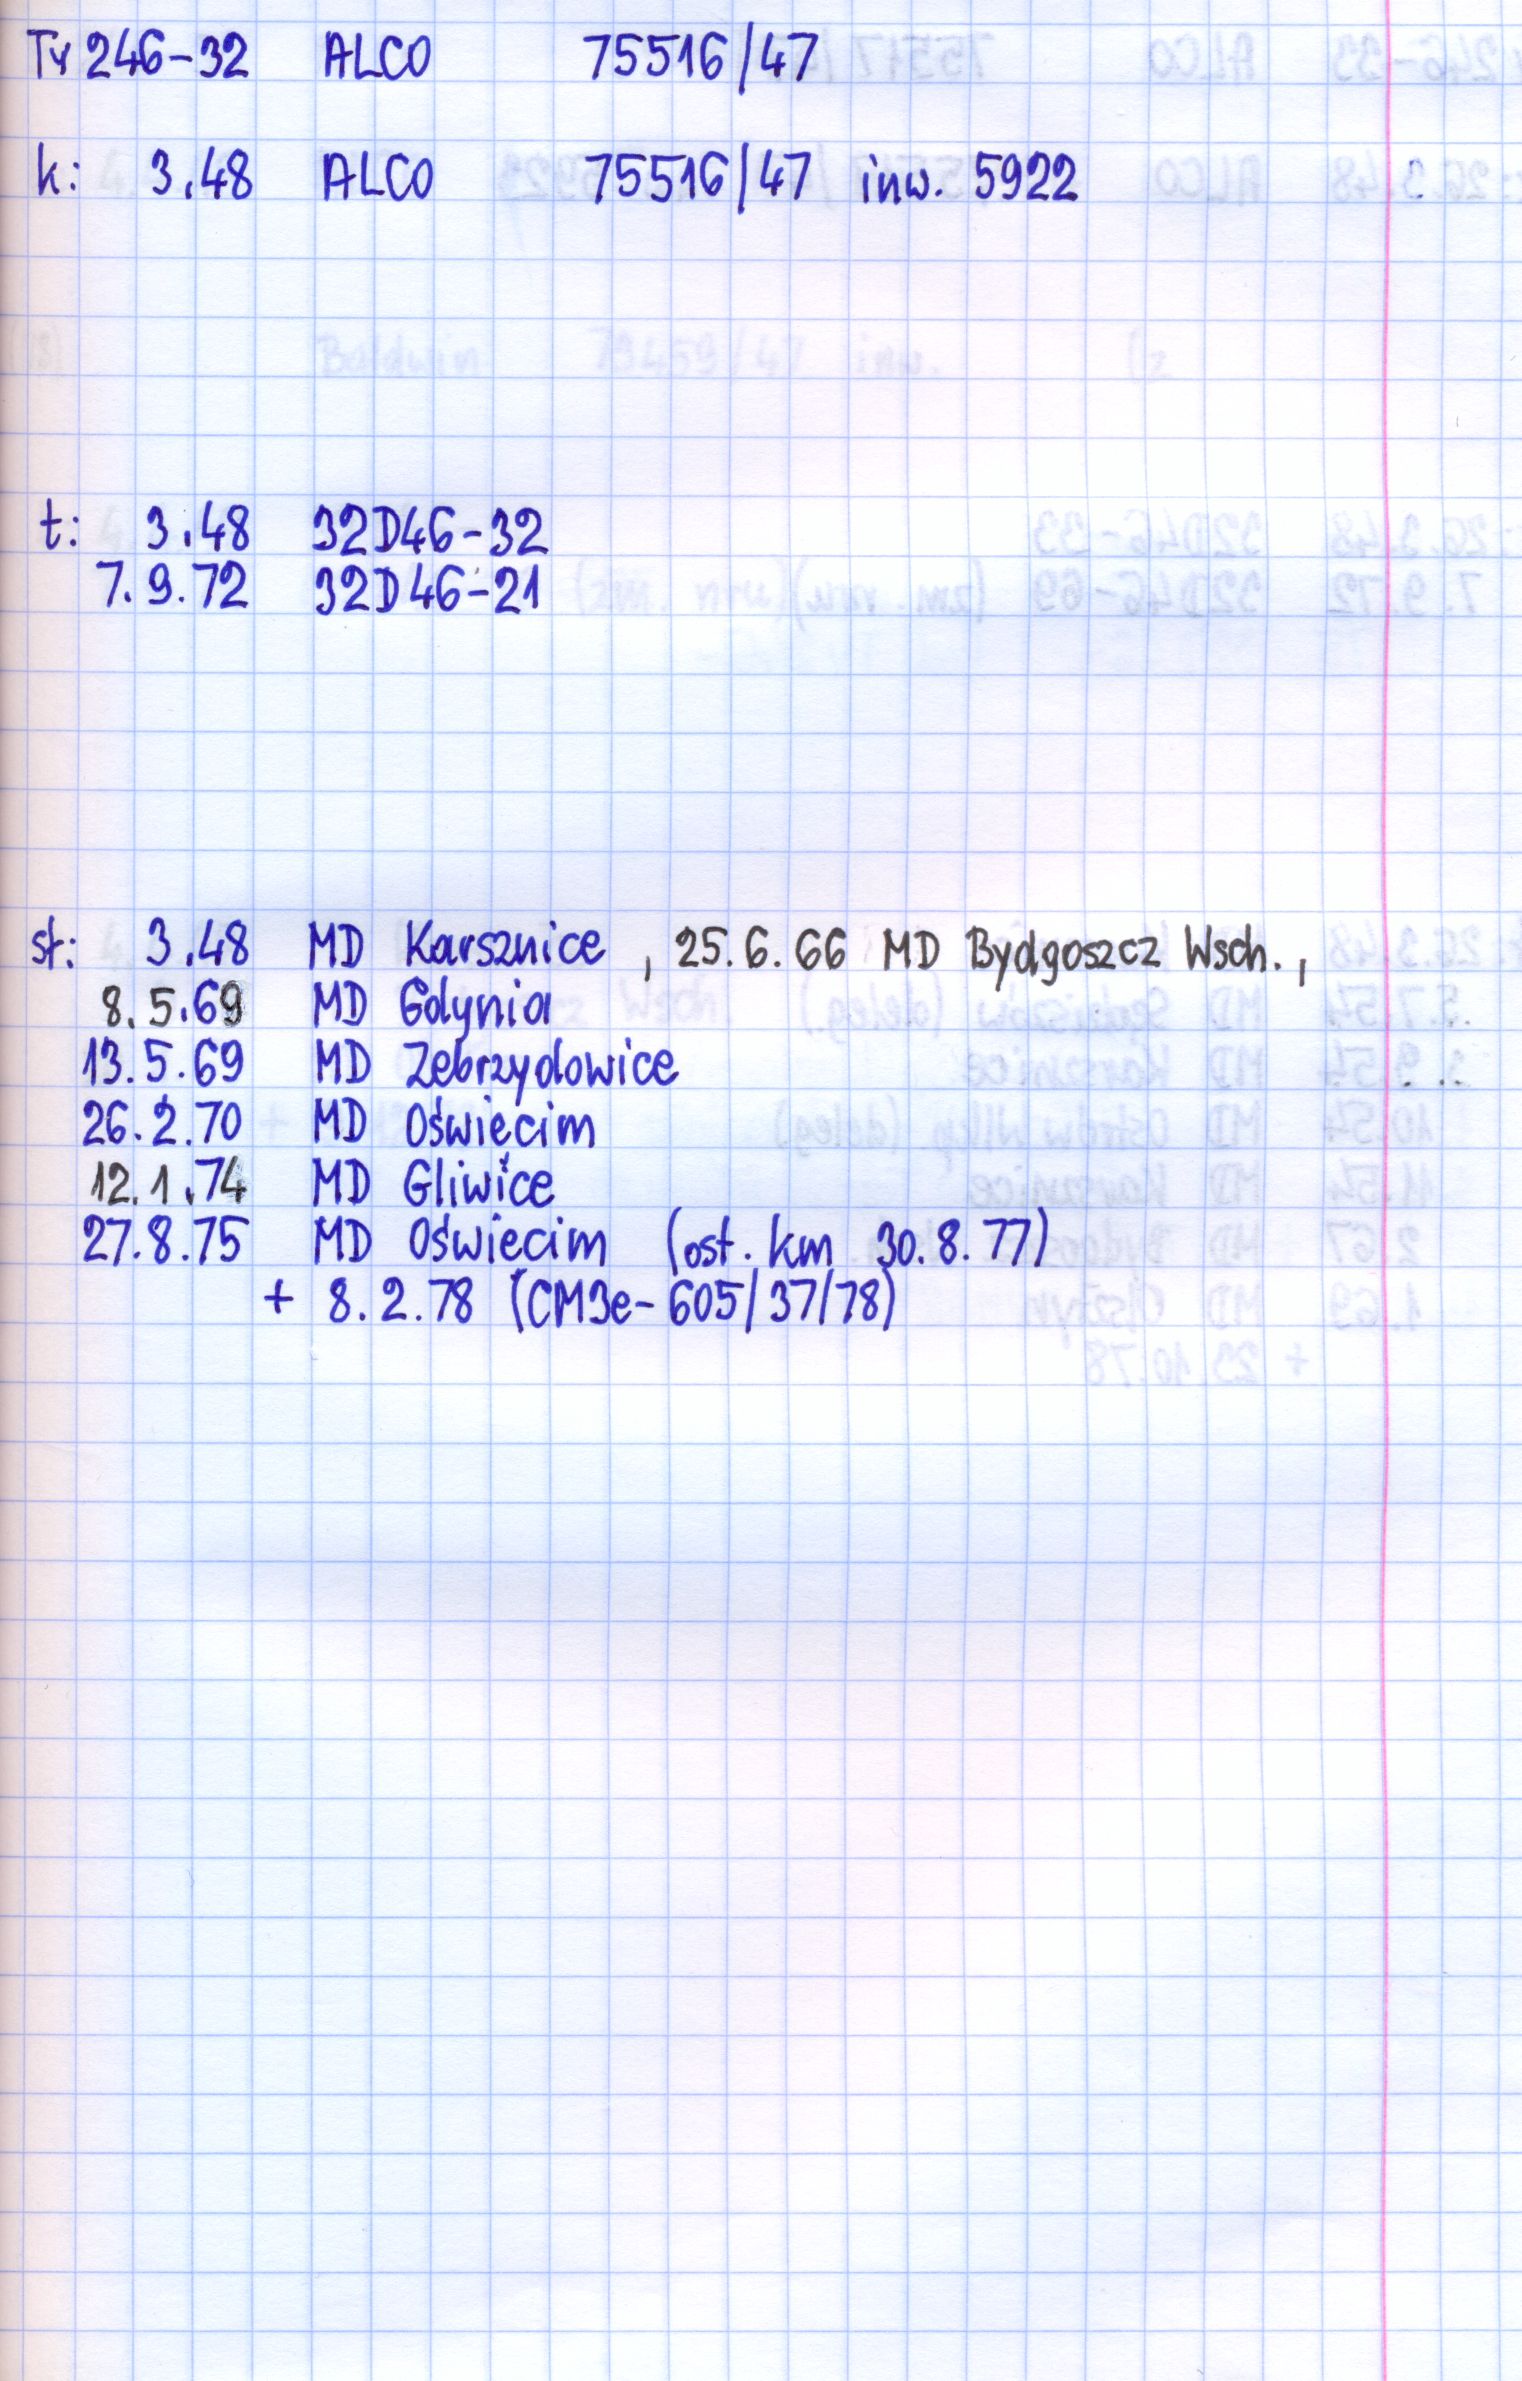 Ty 246-32 ALCO 75516/47
k: 3.48 ALCO 75516/47 inw. 5922
t: 3.48 32D46-32
7.9.72 32D46-21
st: 3.48 MD Karsznice , 25.6.66 MD Bydgoszcz Wsch. ,
8.5.69 MD Gdynia
13.5.69 MD Zebrzydowice
26.2.70 MD Oświęcim
12.1.74 MD Gliwice
27.8.75 MD Oświęcim (ost. km 30.8.77)
+ 8.2.78 (CM3e-605/37/78)